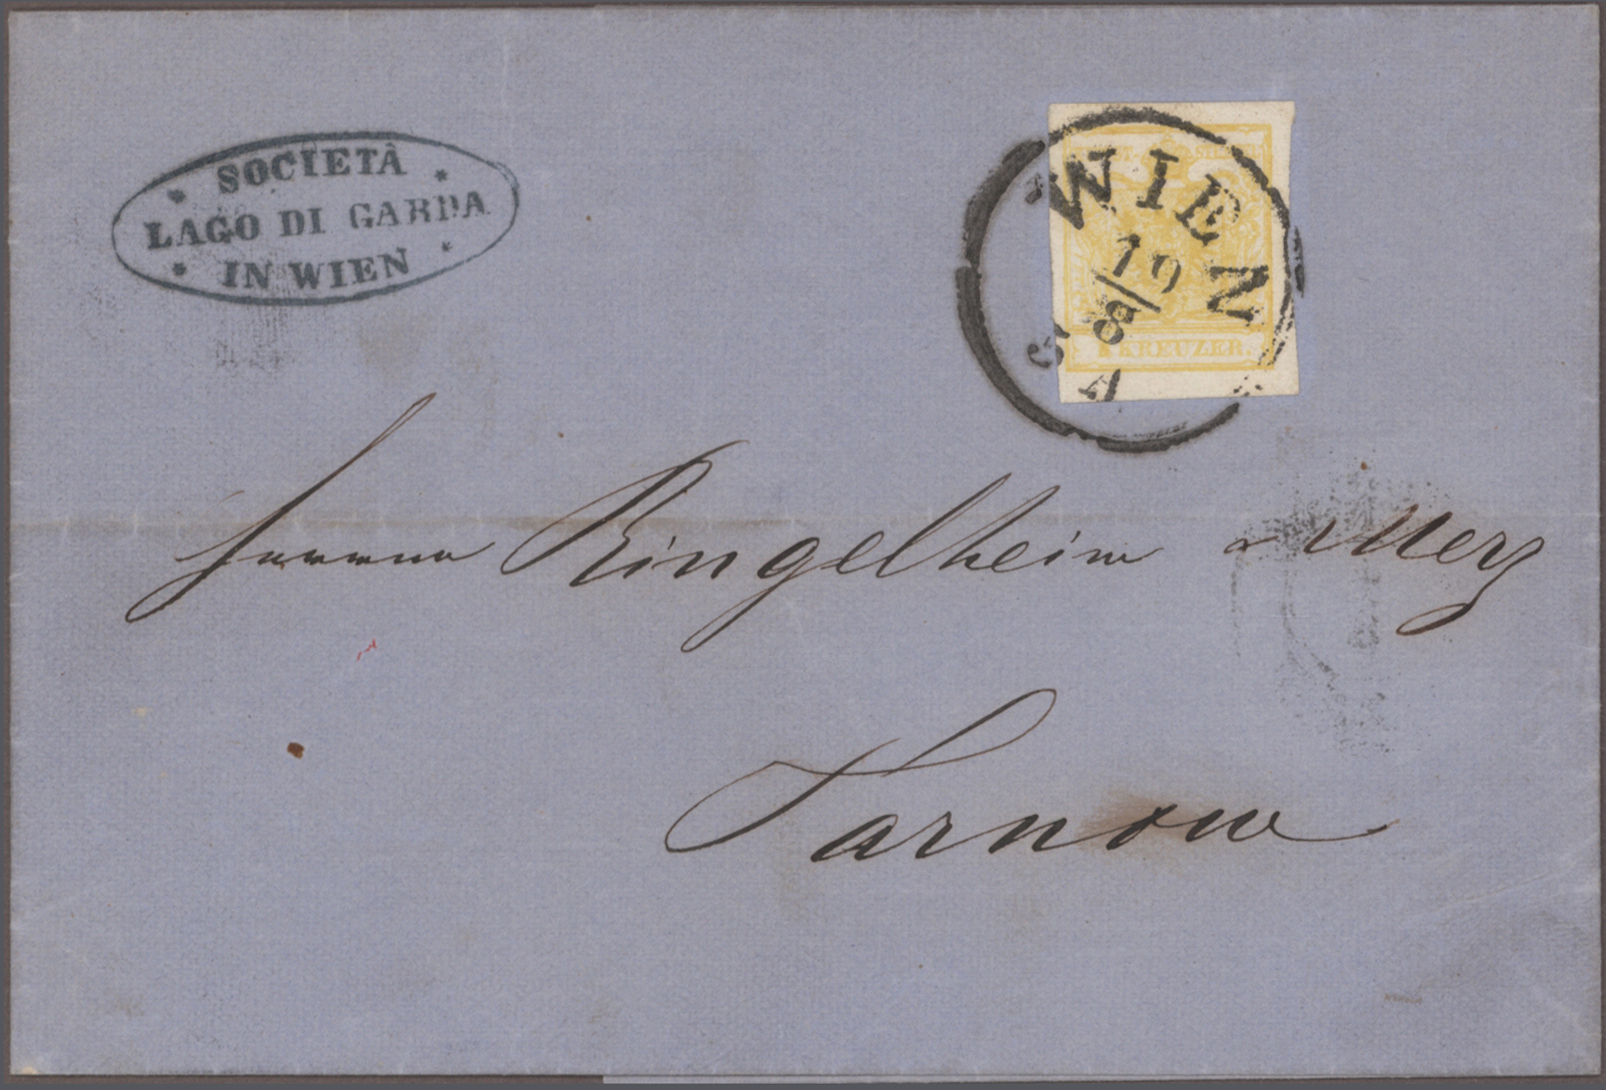 SOCIETÀ
LAGO DI GARDA
IN WIEN
WIEN
19
8
5 A
1 KREUZER.
Herren Ringelheim & Merz
Tarnow